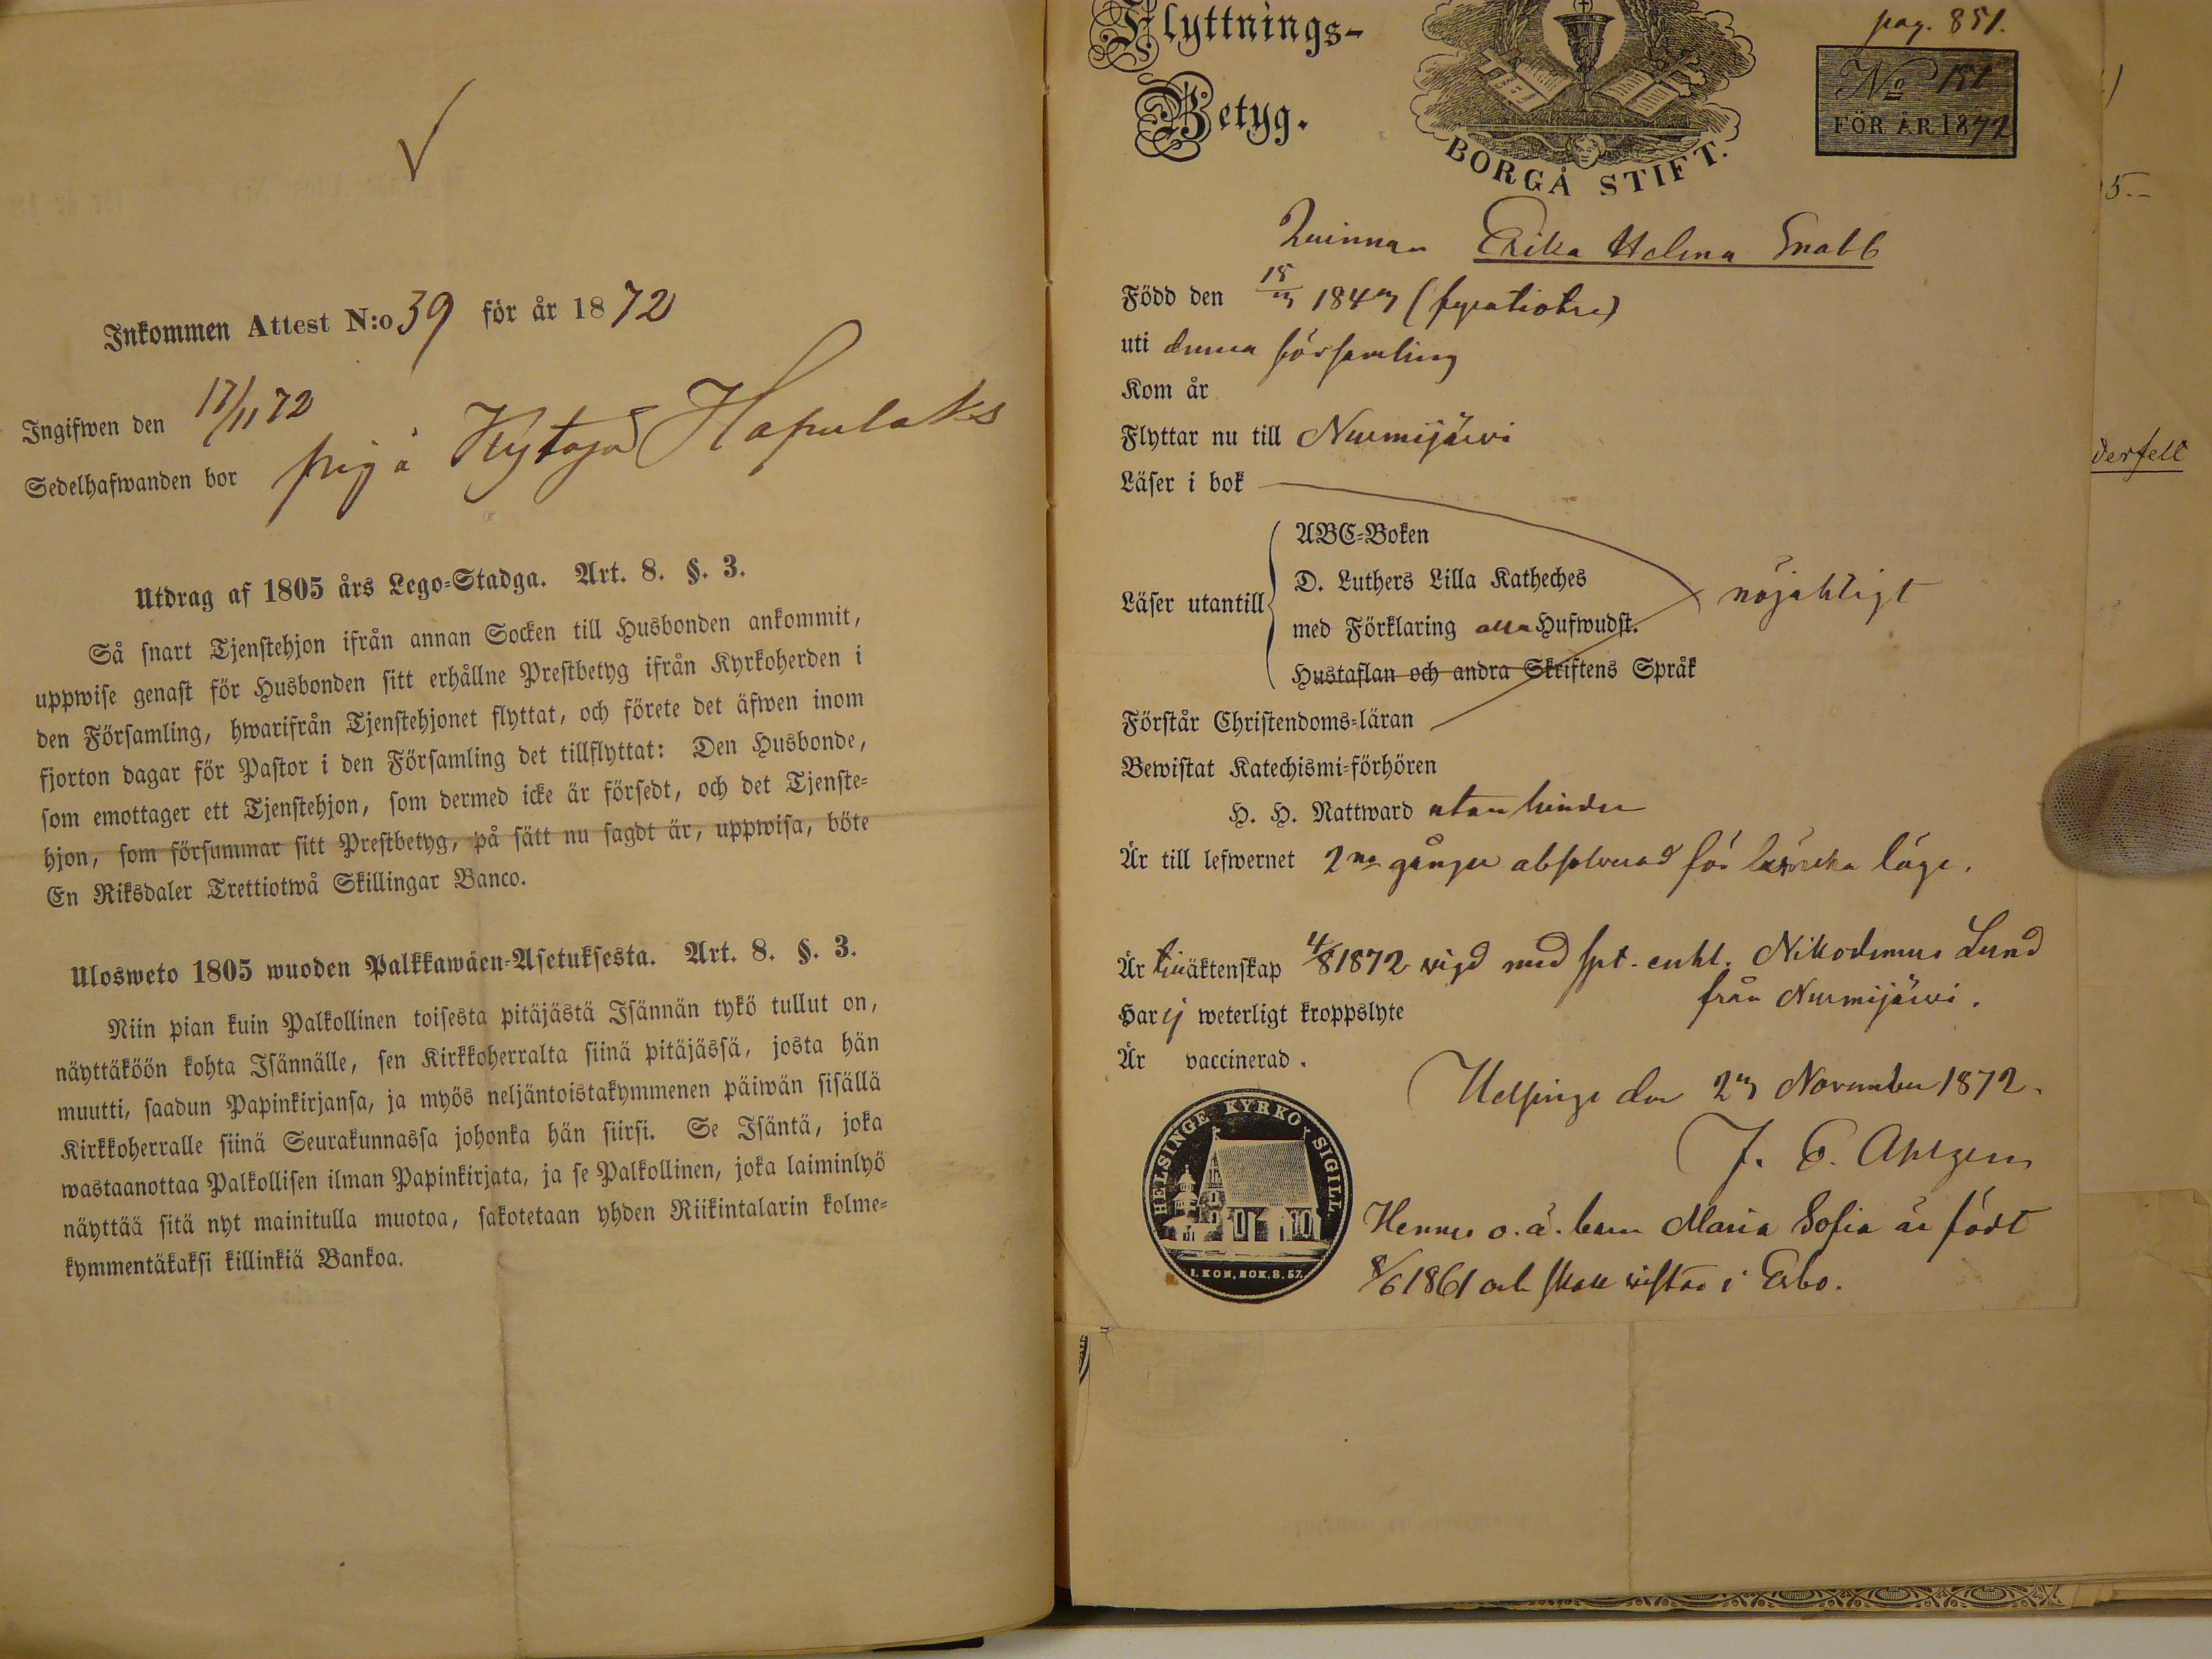 Inkommen Attest N:o 39 för år 1872
Ingifwen den 17/11 72
Sedelhafwanden bor pig å Kytäjä Hapulaks
Utdrag af 1805 års Lego-Stadga. Art. 8. §. 3.
Så snart Tjenstehjon ifrån annan Socken till Husbonden ankommit,
uppwise genast för Husbonden sitt erhållne Prestbetyg ifrån Kyrkoherden i
den Församling, hwarifrån Tjenstehjonet flyttat, och förete det äfwen inom
fjorton dagar för Pastor i den Församling det tillflyttat: Den Husbonde,
som emottager ett Tjenstehjon, som dermed icke är försedt, och det Tjenste-
hjon, som försummar sitt Prestbetyg, på sätt nu sagdt är, uppwisa, böte
En Riksdaler Trettiotwå Skillingar Banco.
Ulosweto 1805 wuoden Palkkawäen-Asetuksesta. Art. 8. §. 3.
Niin pian kuin Palkollinen toisesta pitäjästä Isännän tykö tullut on,
näyttäköön kohta Isännälle, sen Kirkkoherralta siinä pitäjässä, josta hän
muutti, saadun Papinkirjansa, ja myös neljäntoistakymmenen päiwän sisällä
Kirkkoherralle siinä Seurakunnassa johonka hän siirsi. Se Isäntä, joka
wastaanottaa Palkollisen ilman Papinkirjata, ja se Palkollinen, joka laiminlyö
näyttää sitä nyt mainitulla muotoa, sakotetaan yhden Riikintalarin kolme-
kymmentäkaksi killinkiä Bankoa.
Flyttnings-
Betyg.
BORGÅ STIFT.
pag. 851.
No 151
FÖR ÅR 1872
Qvinnan Erika Helena Snabb
Född den 15/3 1843 (fyratiotre)
uti denna församling
Kom år
Flyttar nu till Nurmijärvi
Läser i bok
Läser utantill
ABC-Boken
D. Luthers Lilla Katheches
med Förklaring alla Hufwudst.
Hustaflan och andra Skriftens Språk
nöjaktigt
Förstår Christendoms-läran
Bewistat Katechismi-förhören
H. H. Nattward utan hinder
Är till lefwernet 2ne gånger absolverad för lägersmål.
Är till äktenskap 4/8 1872 vigd med Nikodemus Lund
från Nurmijärvi.
Har ej weterligt kroppslyte
Är vaccinerad.
Helsinge den 23 November 1872.
HELSINGE KYRKO SIGILL.
1. KON. BOK. 8. 57.
Hennes o. ä. barn Maria Sofia är född
8/6 1861 och skall vistas i Esbo.
5.-
derfelt